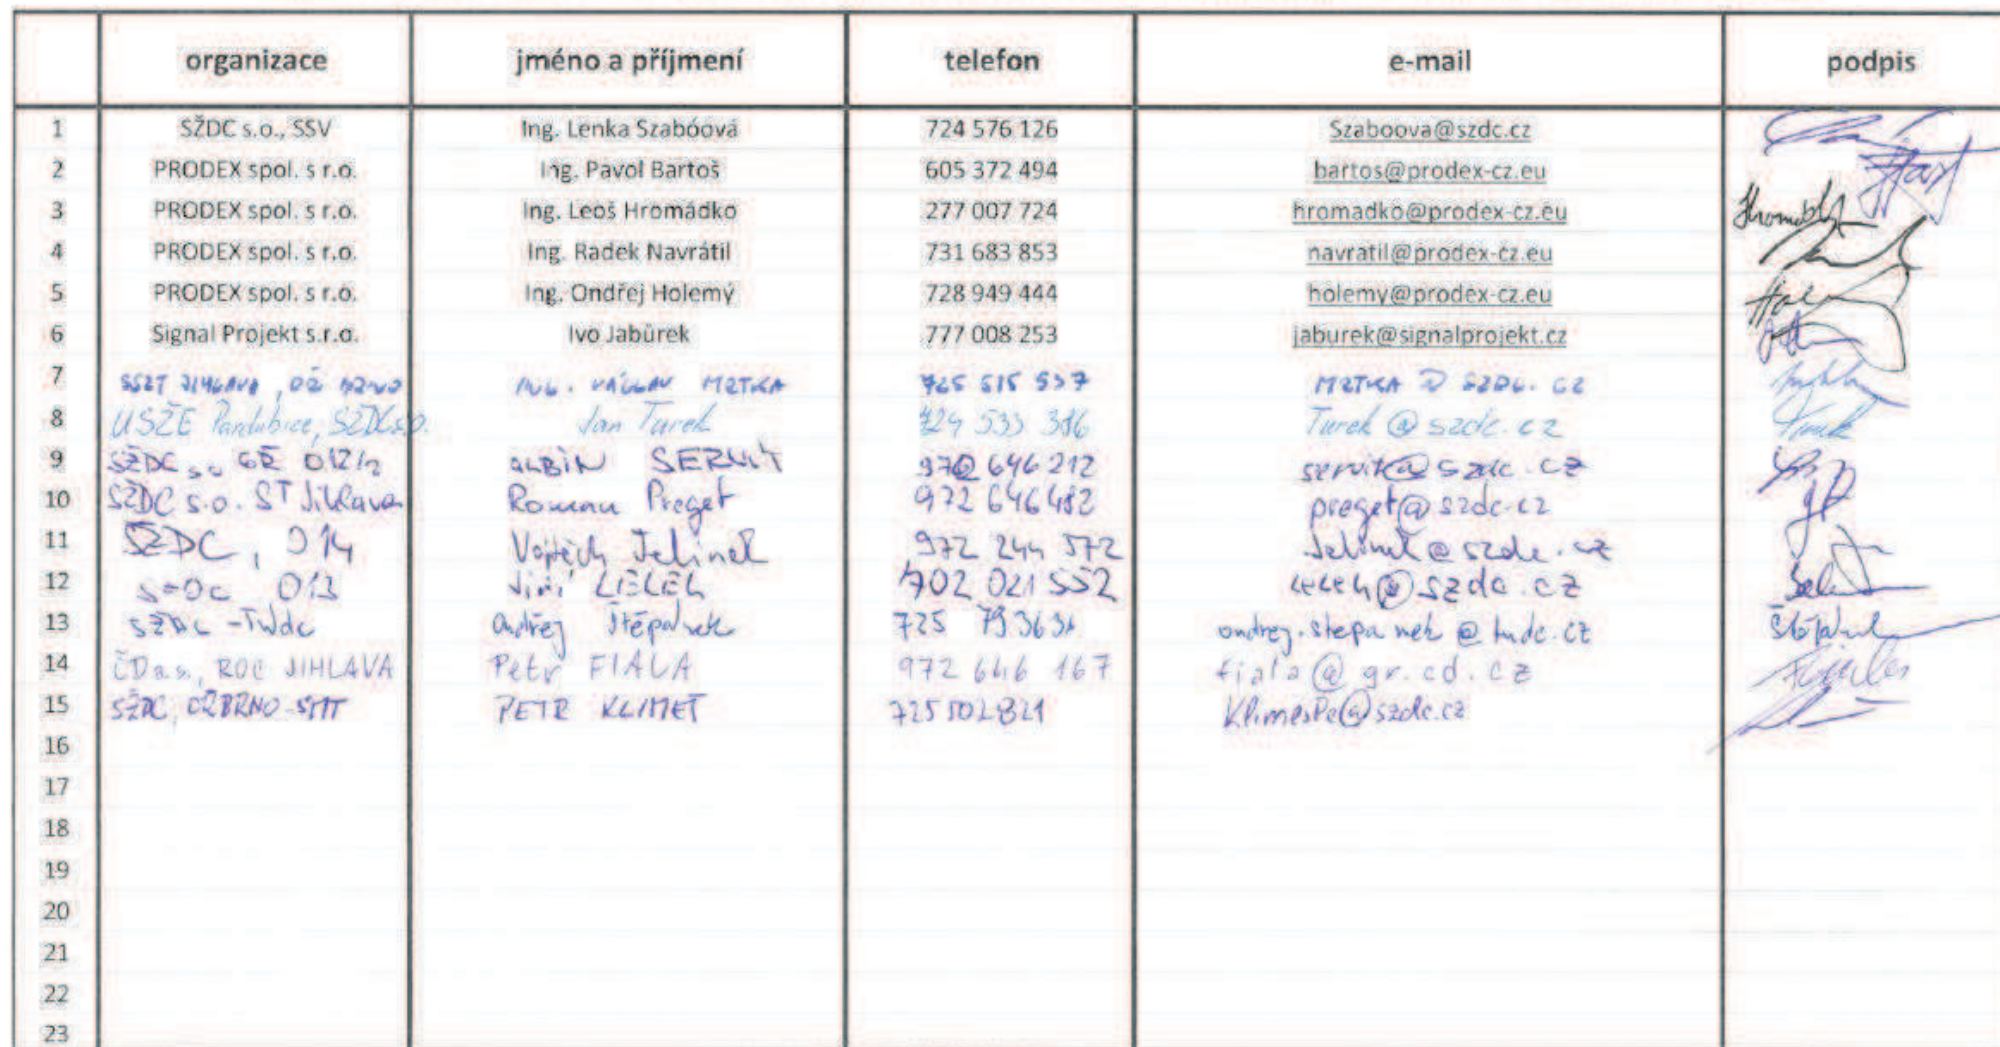 organizace jméno a příjmení telefon e-mail podpis
1 SŽDC s.o., SSV Ing. Lenka Szabóová 724 576 126 Szaboova@szdc.cz
2 PRODEX spol. s r.o. Ing. Pavol Bartoš 605 372 494 bartos@prodex-cz.eu
3 PRODEX spol. s r.o. Ing. Leoš Hromádko 277 007 724 hromadko@prodex-cz.eu
4 PRODEX spol. s r.o. Ing. Radek Navrátil 731 683 853 navratil@prodex-cz.eu
5 PRODEX spol. s r.o. Ing. Ondřej Holemý 728 949 444 holemy@prodex-cz.eu
6 Signal Projekt s.r.o. Ivo Jabůrek 777 008 253 jaburek@signalprojekt.cz
7 SSZT JIHLAVA, OŘ BRNO ING. VÁCLAV MRTKA 725 515 537 MRTKA@SZDC.CZ
8 USŽE Pardubice, SŽDC s.o. Jan Turek 724 533 316 Turek@szdc.cz
9 SŽDC s.o. GŘ O12/2 ALBÍN SERVÍT 972 646 212 servit@szdc.cz
10 SŽDC s.o. ST Jihlava Roman Preget 972 646 482 preget@szdc.cz
11 SŽDC, O14 Vojtěch Jelínek 972 244 572 Jelinek@szdc.cz
12 SŽDC O13 Jiří LELEK 702 021 552 Lelek@szdc.cz
13 SŽDC - TÚDC Ondřej Štěpánek 725 793631 ondrej.stepanek@tudc.cz Štěpánek
14 ČD a.s., ROC JIHLAVA Petr FIALA 972 646 167 fiala@gr.cd.cz
15 SŽDC, OŘ BRNO-SMT PETR KLIMEŠ 725 502 821 KlimesPe@szdc.cz
16
17
18
19
20
21
22
23